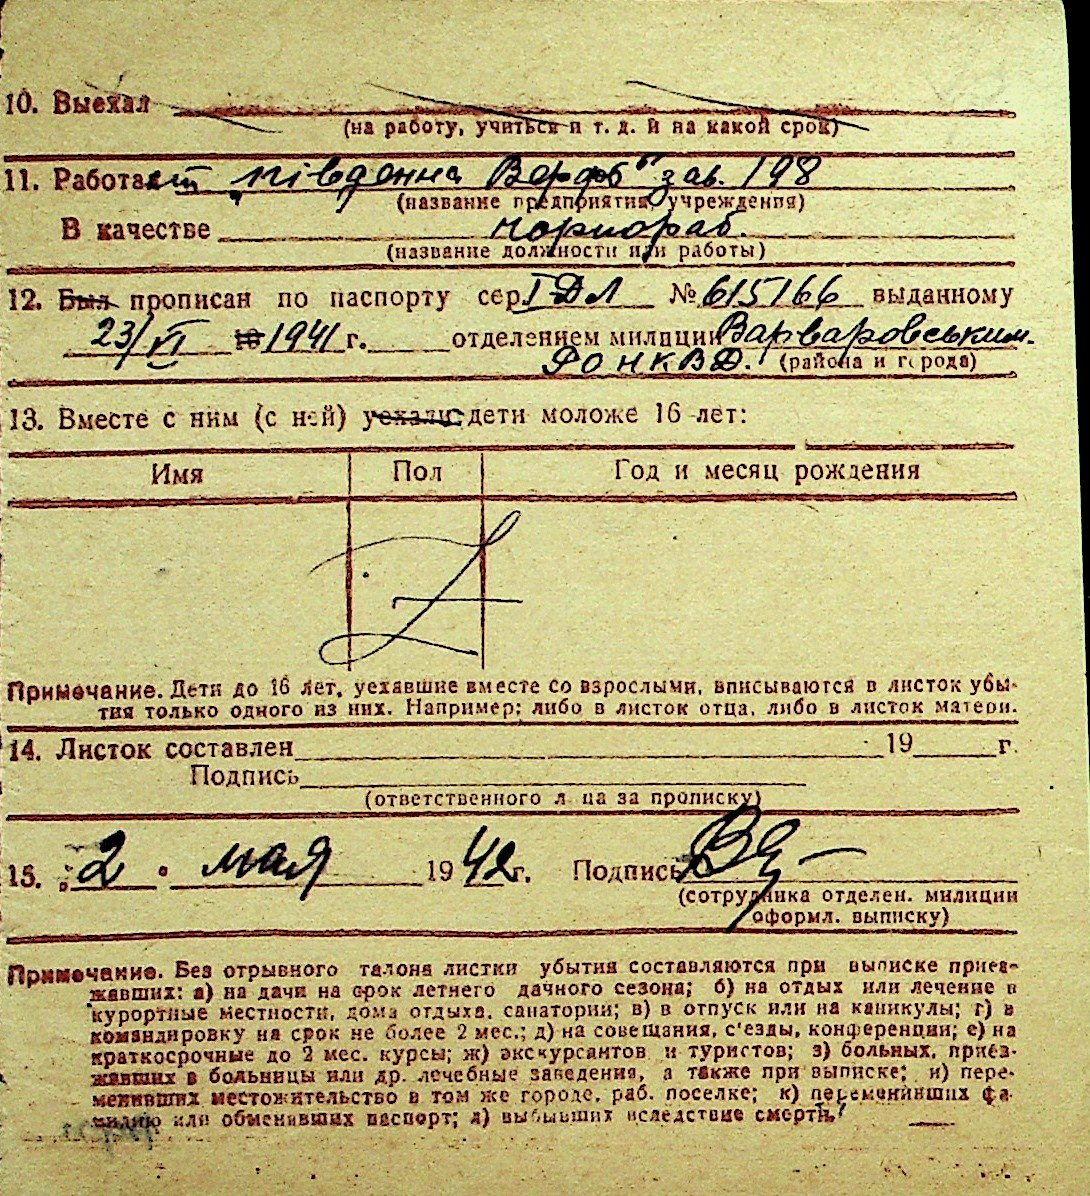 10. Выехал
(на работу, учиться и т. д. и на какой срок)
11. Работает „Південна Верфь" зав. 198
(название предприятия, учреждения)
В качестве чорнораб.
(название должности или работы)
12. Был прописан по паспорту сер. І ДЛ № 615166 выданному
23/VI 1941 г. отделением милиции Варваровським
РО НКВД. (района и города)
13. Вместе с ним (с ней) уехали: дети моложе 16 лет:
Имя Пол Год и месяц рождения
Z
Примечание. Дети до 16 лет, уехавшие вместе со взрослыми, вписываются в листок убы-
тия только одного из них. Например: либо в листок отца, либо в листок матери.
14. Листок составлен 19 г.
Подпись
(ответственного лица за прописку)
15. „2" мая 1942 г. Подпись
(сотрудника отделен. милиции
оформл. выписку)
Примечание. Без отрывного талона листки убытия составляются при выписке приез-
жавших: а) на дачи на срок летнего дачного сезона; б) на отдых или лечение в
курортные местности, дома отдыха, санатории; в) в отпуск или на каникулы; г) в
командировку на срок не более 2 мес.; д) на совещания, с'езды, конференции; е) на
краткосрочные до 2 мес. курсы; ж) экскурсантов и туристов; з) больных, приез-
жавших в больницы или др. лечебные заведения, а также при выписке; и) пере-
менивших местожительство в том же городе, раб. поселке; к) переменивших фа-
милию или обменявших паспорт; л) выбывших вследствие смерти.